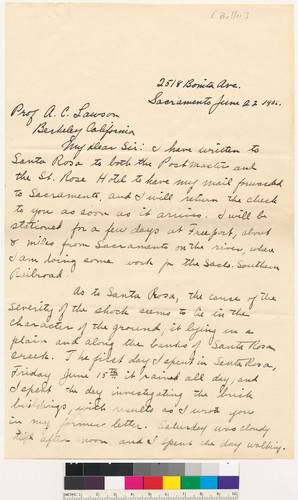 2518 Bonita Ave.
Sacramento June 22 1906.
Prof A. C. Lawson
Berkeley California
My dear Sir: I have written to
Santa Rosa to both the Postmaster and
the St. Rose Hotel to have my mail forwarded
to Sacramento, and I will return the check
to you as soon as it arrives. I will be
stationed for a few days at Freeport, about
8 miles from Sacramento on the river, where
I am doing some work for the Sacto. Southern
Railroad.
As to Santa Rosa, the cause of the
severity of the shock seems to lie in the
character of the ground, it lying in a
plain and along the banks of Santa Rosa
Creek. The first day I spent in Santa Rosa,
Friday June 15th it rained all day, and
I spent the day investigating the brick
buildings, with results as I wrote you
in my former letter. Saturday was cloudy
till after noon and I spent the day walking.